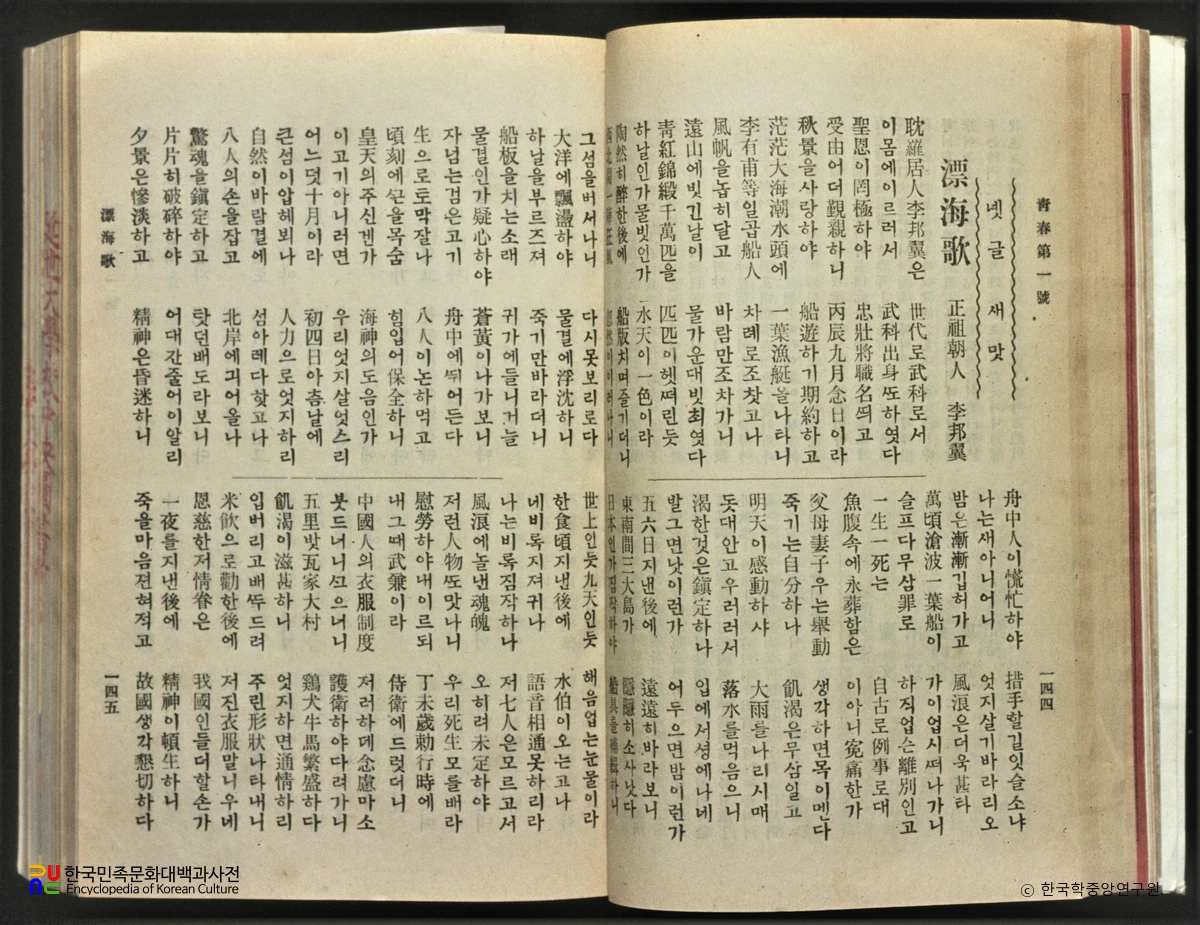 靑春第一號
넷글새맛
漂海歌 正祖朝人 李邦翼
耽羅居人李邦翼은 世代로武科로서
이몸에이르러서 武科出身ᄯᅩ하엿다
聖恩이罔極하야 忠壯將職名ᄯᅴ고
受由어더覲親하니 丙辰九月念日이라
秋景을사랑하야 船遊하기期約하고
茫茫大海潮水頭에 一葉漁艇올나타니
李有甫等일곱船人 차례로조찻고나
風帆을놉히달고 바람만조차가니
遠山에빗긴날이 물가운대빗최엿다
靑紅錦緞千萬匹을 匹匹이헷ᄯᅥ린듯
하날인가물빗인가 水天이一色이라
陶然히醉한後에 船版치며즐기더니
西北間一陣狂風 忽然이이러나니
舟中人이慌忙하야 措手할길잇슬소냐
나는새아니어니 엇지살기바라리오
밤은漸漸깁허가고 風浪은더욱甚타
萬頃滄波一葉船이 가이업시ᄯᅥ나가니
슬프다무삼罪로 하직업슨離別인고
一生一死는 自古로例事로대
魚腹속에永葬함은 이아니寃痛한가
父母妻子우는擧動 생각하면목이멘다
죽기는自分하나 飢渴은무삼일고
明天이感動하샤 大雨를나리시매
돗대안고우러러서 落水를먹음으니
渴한것은鎭定하나 입에서셩에나네
발그면낫이런가 어두으면밤이런가
五六日지낸後에 遠遠히바라보니
東南間三大島가 隱隱히소사낫다
日本인가짐작하야 船具를補緝하니
一四四
그섬을버서나니 다시못보리로다
大洋에飄盪하야 물결에浮沈하니
하날을부르즈져 죽기만바라더니
船板을치는소래 귀가에들니거늘
물결인가疑心하야 蒼黃이나가보니
자넘는검은고기 舟中에ᄯᅱ어든다
生으로토막잘나 八人이논하먹고
頃刻에ᄭᅳᆫ을목숨 힘입어保全하니
皇天의주신겐가 海神의도음인가
이고기아니러면 우리엇지살엇스리
어느덧十月이라 初四日아츰날에
큰섬이압헤뵈나 人力으로엇지하리
自然이바람결에 섬아레다핫고나
八人의손을잡고 北岸에긔어올나
驚魂을鎭定하고 탓던배도라보니
片片히破碎하야 어대갓줄어이알리
夕景은慘淡하고 精神은昏迷하니
世上인듯九天인듯 해음업는눈물이라
한食頃지낸後에 水伯이오는고나
네비록지져귀나 語音相通못하리라
나는비록짐작하나 저七人은모르고서
風浪에놀낸魂魄 오히려未定하야
저런人物ᄯᅩ맛나니 우리死生모를배라
慰勞하야내이르되 丁未歲勅行時에
내그ᄯᅢ武兼이라 侍衛에드럿더니
中國人의衣服制度 저러하데念慮마소
붓드너니ᄭᅳ으너니 護衛하야다려가니
五里밧瓦家大村 鷄犬牛馬繁盛하다
飢渴이滋甚하니 엇지하면通情하리
입버리고배ᄯᅮ드려 주린形狀나타내니
米飮으로勸한後에 저진衣服말니우네
恩慈한저情眷은 我國人들더할손가
一夜를지낸後에 精神이頓生하니
죽을마음전혀적고 故國생각懇切하다
漂海歌
一四五
한국민족문화대백과사전
Encyclopedia of Korean Culture
© 한국학중앙연구원